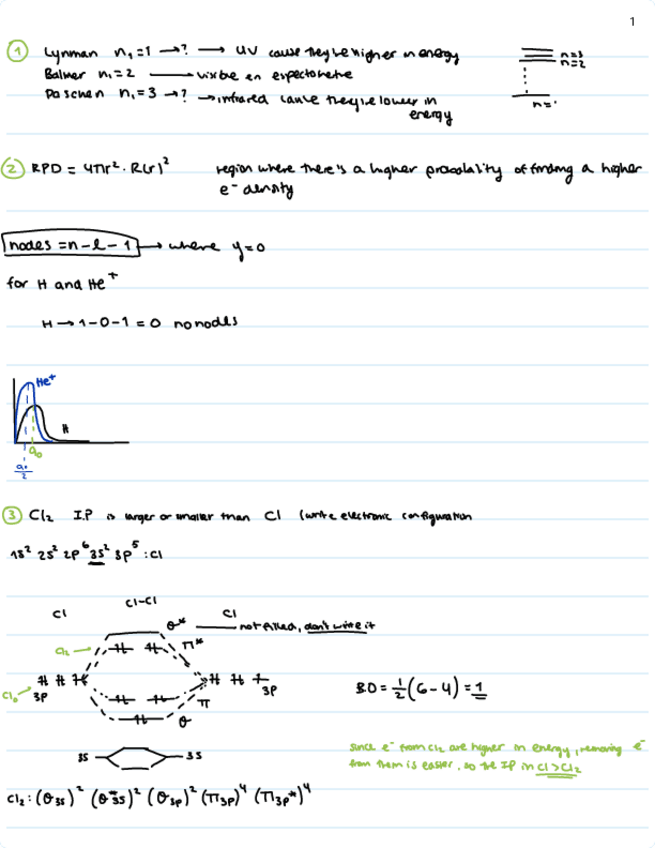 1
① Lynman n₁=1 →? → UV cause they're higher in energy
Balmer n₁=2 → visible en espectometre
Paschen n₁=3 →? → infrared cause they're lower in energy
n=3
n=2
n=1
② RPD = 4πr² · R(r)² region where there's a higher probability of finding a higher
e⁻ density
nodes = n-l-1 → where y=0
for H and He⁺
H → 1-0-1 = 0 no nodes
He⁺
H
a₀
a₀/2
③ Cl₂ I.P is larger or smaller than Cl (write electronic configuration
1s² 2s² 2p⁶ 3s² 3p⁵ : Cl
Cl Cl-Cl Cl
σ* not filled, don't write it
Cl₂ → π*
Cl → 3p 3p
π
σ
BO = 1/2 (6-4) = 1
3s 3s
since e⁻ from Cl₂ are higher in energy, removing e⁻
from them is easier, so the IP in Cl > Cl₂
Cl₂ : (σ3s)² (σ*3s)² (σ3p)² (π3p)⁴ (π3p*)⁴